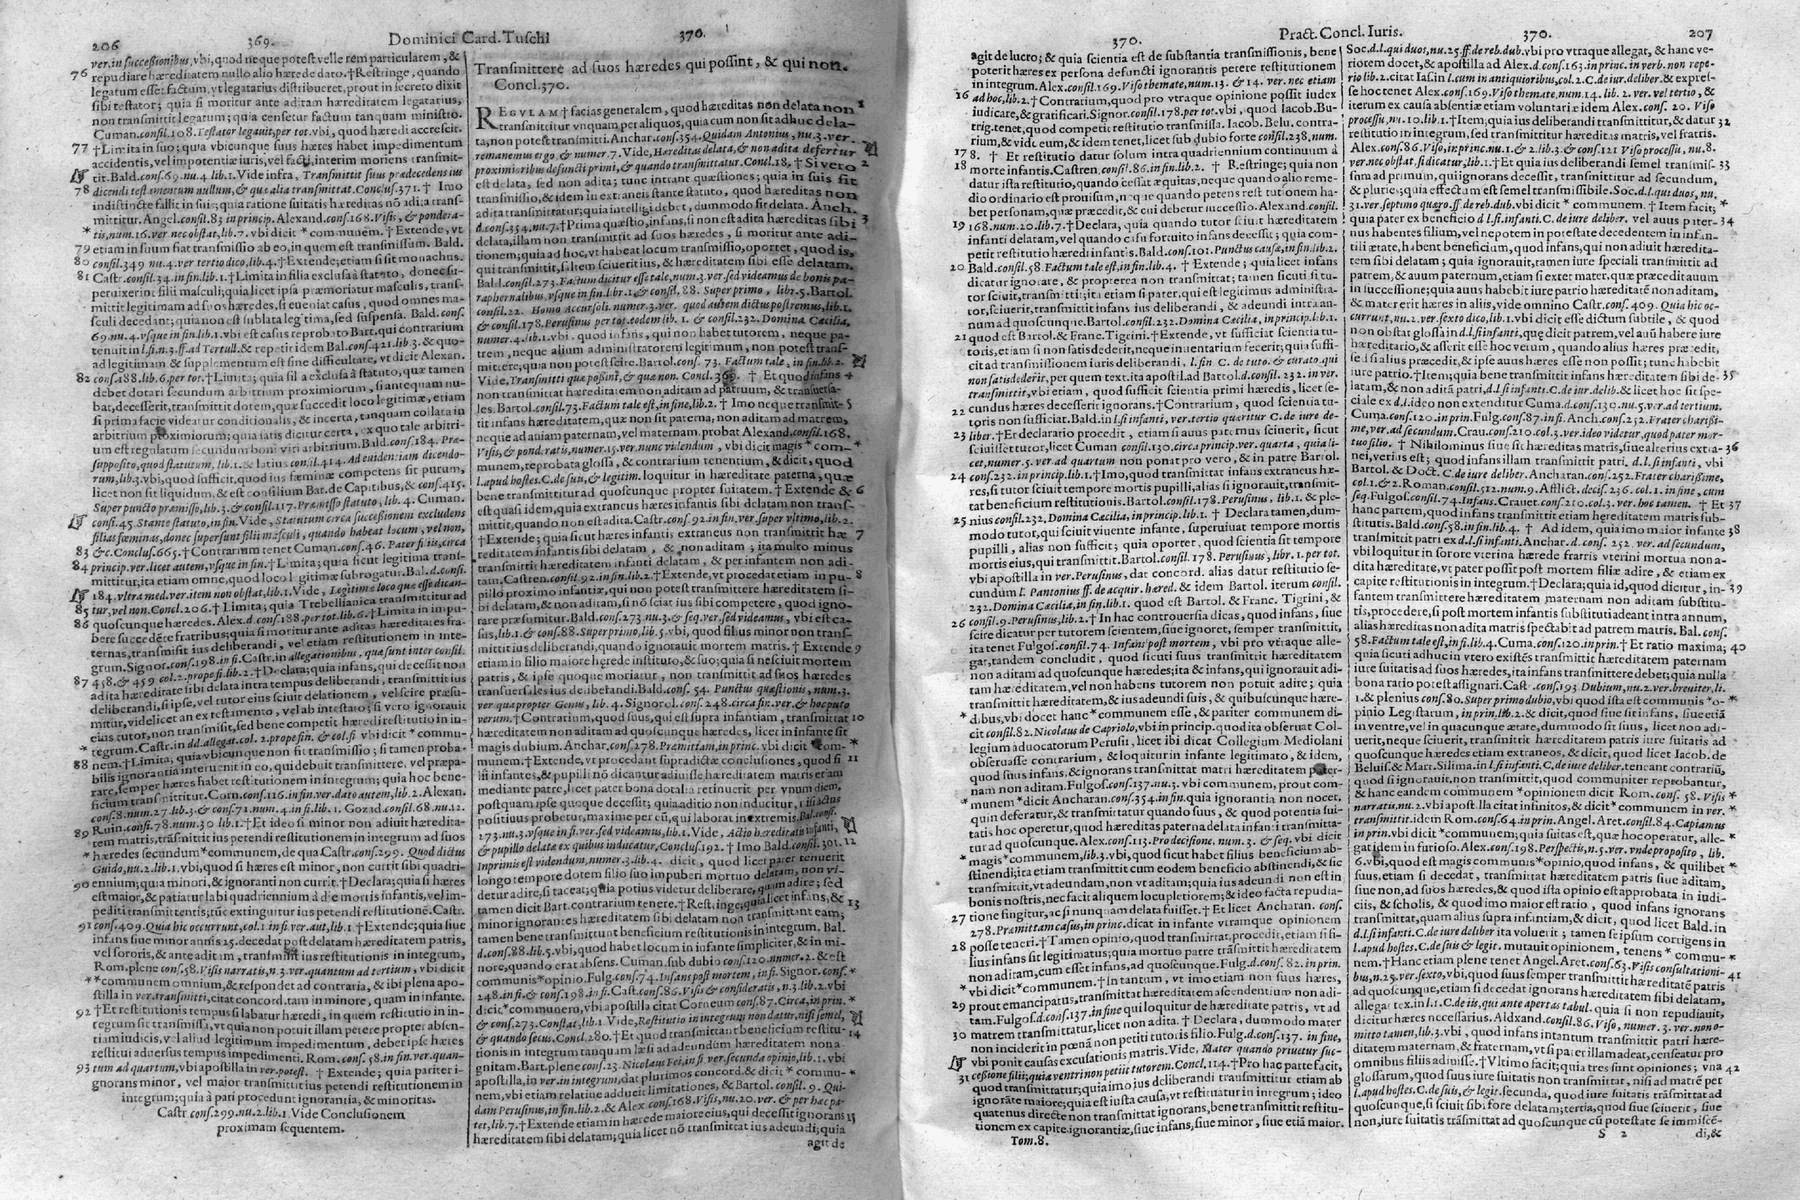 206 369. Dominici Card. Tuschi 370.
ver. in successionibus, vbi, quod neque potest velle rem particularem, &
76 repudiare hæreditatem nullo alio hærede dato. † Restringe, quando
legatum esset factum, vt legatarius distribueret, prout in secreto dixit
sibi testator; quia si moritur ante aditam hæreditatem legatarius,
non transmittit legatum; quia censetur factum tanquam ministro.
Cuman. consil. 108. Testator legauit, per tot. vbi, quod hæredi accrescit.
77 † Limita in suo; quia vbicunque suus hæres habet impedimentum
accidentis, vel impotentiæ iuris, vel facti, interim moriens transmit-
tit. Bald. cons. 69. nu. 4. lib. 1. Vide infra, Transmittit suus prædecedens ius
78 dicendi testamentum nullum, & quæ alia transmittat. Conclus. 371. † Imo
indistincte fallit in suis; quia ratione suitatis hæreditas non adita trans-
mittitur. Angel. consil. 83. in princip. Alexand. cons. 168. Visis, & pondera-
* tis, num. 16. ver. nec obstat, lib. 7. vbi dicit * communem. † Extende, vt
79 etiam in suum fiat transmissio ab eo, in quem est transmissum. Bald.
80 consil. 349. nu. 4. ver. tertio dico, lib. 4. † Extende; etiam si sit monachus.
81 Castr. consil. 34. in fin. lib. 1. † Limita in filia exclusa à statuto, donec su-
peruixerint filii masculi; quia licet ipsa præmoriatur masculis, trans-
mittit legitimam ad suos hæredes, si eueniat casus, quod omnes ma-
sculi decedant; quia non est sublata legitima, sed suspensa. Bald. cons.
69. nu. 4. vsque in fin. lib. 1. vbi est casus reprobato Bart. qui contrarium
tenuit in l. si n. 3. ff. ad Tertull. & repetit idem Bal. cons. 421. lib. 3. & quo-
ad legitimam & supplementum est sine difficultate, vt dicit Alexan.
82 cons. 188. lib. 6. per tot. † Limita; quia filia exclusa à statuto, quæ tamen
debet dotari secundum arbitrium proximiorum, si antequam nu-
bat, decesserit, transmittit dotem, quæ succedit loco legitimæ, etiam
si prima facie videatur conditionalis, & incerta, tanquam collata in
arbitrium proximiorum; quia satis dicitur certa, ex quo tale arbitri-
um est regulatum secundum boni viri arbitrium. Bald. cons. 184. Præ-
supposito, quod statutum, lib. 1. & latius consil. 414. Ad euidentiam dicendo-
rum, lib. 3. vbi, quod sufficit, quod ius fœminæ competens sit purum,
licet non sit liquidum, & est consilium Bar. de Capitibus, & cons. 415.
Super puncto præmisso, lib. 3. & consil. 117. Præmisso statuto, lib. 4. Cuman.
cons. 45. Stante statuto, in fin. Vide, Statutum circa successionem excludens
filias fœminas, donec supersunt filii masculi, quando habeat locum, vel non,
83 &c. Conclus. 665. † Contrarium tenet Cuman. cons. 46. Pater filiis, circa
84 princip. ver. licet autem, vsque in fin. † Limita; quia sicut legitima trans-
mittitur, ita etiam omne, quod loco legitimæ subrogatur. Bal. d. consil.
184. vltra med. ver. item non obstat, lib. 1. Vide, Legitimæ loco quæ esse dican-
85 tur, vel non. Concl. 206. † Limita; quia Trebellianica transmittitur ad
86 quoscunque hæredes. Alex. d. cons. 188. per tot. lib. 6. † Limita in impu-
bere succedente fratribus; quia si moritur ante aditas hæreditates fra-
ternas, transmisit ius deliberandi, vel etiam restitutionem in inte-
grum. Signor. cons. 198. in fi. Castr. in allegationibus, quæ sunt inter consil.
87 458. & 459. col. 2. propè fi. lib. 2. † Declara; quia infans, qui decessit non
adita hæreditate sibi delata intra tempus deliberandi, transmittit ius
deliberandi, si ipse, vel tutor eius sciuit delationem, vel scire præsu-
mitur, videlicet an ex testamento, vel ab intestato; si vero ignorauit
eius tutor, non transmisit, sed bene competit hæredi restitutio in in-
* tegrum. Castr. in dd. allegat. col. 2. propè fin. & col. fi. vbi dicit * commu-
88 nem. † Limita, quia vbicunque non fit transmissio; si tamen proba-
bilis ignorantia interuenit in eo, qui debuit transmittere, vel præpa-
rare, semper hæres habet restitutionem in integrum; quia hoc bene-
ficium transmittitur. Corn. cons. 116. in fin. ver. dato autem, lib. 2. Alexan.
cons. 8. num. 27. lib. 3. & cons. 71. num. 4. in fi. lib. 1. Gozad. consil. 68. nu. 12.
89 Ruin. consil. 78. num. 30. lib. 1. † Et ideo si minor non adiuit hæredita-
tem matris, trãsmittit ius petendi restitutionem in integrum ad suos
* hæredes secundum * communem, de qua Castr. cons. 299. Quod dictus
Guido, nu. 2. lib. 1. vbi, quod si hæres est minor, non currit sibi quadri-
90 ennium; quia minori, & ignoranti non currit. † Declara; quia si hæres
est maior, & patiatur labi quadriennium à die mortis infantis, vel im-
pediti transmittentis; tũc extinguitur ius petendi restitutionẽ. Castr.
91 cons. 409. Quia hic occurrunt, col. 1. in fi. ver. aut, lib. 1. † Extende; quia siue
infans siue minor annis 25. decedat post delatam hæreditatem patris,
vel sororis, & ante aditam, transmittit ius restitutionis in integrum,
Rom. plene cons. 58. Visis narratis, n. 3. ver. quantum ad tertium, vbi dicit
** * communem omnium, & respondet ad contraria, & ibi plena apo-
stilla in ver. transmitti, citat concord. tam in minore, quam in infante.
92 † Et restitutionis tempus si labatur hæredi, in quem restitutio in in-
tegrum sit transmissa, vt quia non potuit illam petere propter absen-
tiam iudicis, vel aliud legitimum impedimentum, debet ipse hæres
restitui aduersus tempus impedimenti. Rom. cons. 58. in fin. ver. quan-
93 tum ad quartum, vbi apostilla in ver. potest. † Extende; quia pariter i-
gnorans minor, vel maior transmittit ius petendi restitutionem in
integrum; quia à pari procedunt ignorantia, & minoritas.
Castr. cons. 299. nu. 2. lib. 1. Vide Conclusionem
proximam sequentem.
Transmittere ad suos hæredes qui possint, & qui non.
Concl. 370.
REGVLAM † facias generalem, quod hæreditas non delata non 1
transmittitur vnquam per aliquos, quia cum non sit adhuc dela-
ta, non potest transmitti. Anchar. cons. 354. Quidam Antonius, nu. 3. ver.
remanemus ergo, & numer. 7. Vide, Hæreditas delata, & non adita defertur
proximioribus defuncti primi, & quando transmittatur. Concl. 18. † Si vero 2
est delata, sed non adita; tunc intrant quæstiones; quia in suis fit
transmissio, & idem in extraneis stante statuto, quod hæreditas non
adita transmittatur; quia intelligi debet, dummodo sit delata. Anch.
d. cons. 354. nu. 7. † Prima quæstio, infans, si non est adita hæreditas sibi 3
delata, illam non transmittit ad suos hæredes, si moritur ante adi-
tionem; quia ad hoc, vt habeat locum transmissio, oportet, quod is,
qui transmittit, saltem sciuerit ius, & hæreditatem sibi esse delatam.
Bald. consil. 273. Factum dicitur esse tale, num. 3. ver. sed videamus de bonis pa-
raphernalibus, vsque in fin. lib. 1. & consil. 88. Super primo, libr. 5. Bartol.
consil. 22. Homo Accursoli. numer. 3. ver. quod autem dictus postremus, lib. 1.
& consil. 178. Perusinus per tot. eodem lib. 1. & consil. 232. Domina Cæcilia,
numer. 4. lib. 1. vbi, quod infans, qui non habet tutorem, neque pa-
trem, neque alium administratorem legitimum, non potest trans-
mittere; quia non potest scire. Bartol. consil. 73. Factum tale, in fin. lib. 2.
Vide, Transmitti quæ possint, & quæ non. Concl. 369. † Et quod infans 4
non transmittat hæreditatem non aditam ad patruum, & transuersa-
les. Bartol. consil. 73. Factum tale est, in fine, lib. 2. † Imo neque transmit- 5
tit infans hæreditatem, quæ non sit paterna, non aditam ad matrem,
neque ad auiam paternam, vel maternam. probat Alexand. consil. 168.
Visis, & pond. ratis, numer. 15. ver. nunc videndum, vbi dicit magis * com- *
munem, reprobata glossa, & contrarium tenentium, & dicit, quod
l. apud hostes. C. de suis, & legitim. loquitur in hæreditate paterna, quæ
bene transmittitur ad quoscunque propter suitatem. † Extende & 6
est quasi idem, quia extraneus hæres infantis sibi delatam non trans-
mittit, quando non est adita. Castr. cons. 92. in fin. ver. super vltimo, lib. 2.
† Extende; quia sicut hæres infantis extraneus non transmittit hæ- 7
reditatem infantis sibi delatam, & non aditam; ita multo minus
transmittit hæreditatem infanti delatam, & per infantem non adi-
tam. Castren. consil. 92. in fin. lib. 2. † Extende, vt procedat etiam in pu- 8
pillo proximo infantiæ, qui non potest transmittere hæreditatem si-
bi delatam, & non aditam, si nõ sciat ius sibi competere, quod igno-
rare præsumitur. Bald. cons. 273. nu. 3. & seq. ver. sed videamus, vbi est ca-
sus, lib. 1. & cons. 88. Super primo, lib. 5. vbi, quod filius minor non trans-
mittit ius deliberandi, quando ignorauit mortem matris. † Extende 9
etiam in filio maiore herede instituto, & suo; quia si nesciuit mortem
patris, & ipse quoque moriatur, non transmittit hæreditatem ad
transuersales ius deliberandi. Bald. cons. 54. Punctus quæstionis, num. 3.
ver. qua propter Genus, lib. 4. Signorol. cons. 248. circa fin. ver. & hoc puto
verum. † Contrarium, quod suus, qui est supra infantiam, transmittat 10
hæreditatem non aditam ad quoscunque hæredes, licet in infante sit
magis dubium. Anchar. cons. 278. Præmittam, in princ. vbi dicit * com- *
munem. † Extende, vt procedant supradictæ conclusiones, quod si 11
isti infantes, & pupilli nõ dicantur adiuisse hæreditatem matris etiam
mediante patre, licet pater bona dotalia retinuerit per vnum diem,
postquam ipse quoque decessit; quia aditio non inducitur, nisi actus
positiuus probetur, maxime per eũ, qui laborat in extremis. Bal. cons.
273. nu. 3. vsque in fi. ver. sed videamus, lib. 1. Vide, Actio hæreditatis infanti,
& pupillo delatæ ex quibus inducatur, Conclus. 192. † Imo Bald. consil. 301. 12
Inprimis est videndum, numer. 3. lib. 4. dicit, quod licet pater tenuerit
longo tempore dotem filio suo impuberi mortuo delatam, non vi-
detur adire, si taceat; quia potius videtur deliberare, quam adire; sed
tamen dicit Bart. contrarium tenere. † Restringe; quia licet infans, & 13
minor ignorantes hæreditatem sibi delatam non transmittant eam;
tamen bene transmittunt beneficium restitutionis in integrum. Bal.
d. cons. 88. lib. 5. vbi, quod habet locum in infante simpliciter, & in mi-
nore, quando erat absens. Cuman. sub dubio cons. 120. numer. 2. & est
communis * opinio. Fulg. cons. 74. Infans post mortem, in fi. Signor. cons. *
248. in fi. & cons. 198. in fi. Castr. cons. 86. Visis & consideratis, n. 3. lib. 2. vbi
dicit * communem, vbi apostilla citat Corneum cons. 87. Circa, in prin. *
& cons. 273. Constat, lib. 1. Vide, Restitutio in integrum non datur, nisi semel,
& quando secus. Concl. 280. † Et quod transmittant beneficium restitu- 14
tionis in integrum tanquam læsi ad adeundum hæreditatem non a-
gnitam. Bart. plene cons. 23. Nicolaus Fei, in fi. ver. secunda opinio, lib. 1. vbi
apostilla, in ver. in integrum, dat plurimos concord. & dicit * commu- *
nem, vbi etiam relatiue adducit limitationes, & Bartol. consil. 9. Qui-
dam Perusinus, in fin. lib. 2. & Alex. cons. 168. Visis, nu. 20. ver. & per hæc pa-
tet, lib. 7. † Extende etiam in hærede maiore eius, qui decessit ignorans 15
hæreditatem sibi delatam; quia licet nõ transmittat ius adeundi; quia
agit de
370. Pract. Concl. Iuris. 370. 207
agit de lucro; & quia scientia est de substantia transmissionis, bene
poterit hæres ex persona defuncti ignorantis petere restitutionem
in integrum. Alex. consil. 169. Viso themate, num. 13. & 14. ver. nec etiam
16 ad hoc, lib. 2. † Contrarium, quod pro vtraque opinione possit iudex
iudicare, & gratificari. Signor. consil. 178. per tot. vbi, quod Iacob. Bu-
trig. tenet, quod competit restitutio transmissa. Iacob. Belu. contra-
rium, & vide eum, & idem tenet, licet sub dubio forte consil. 238. num.
17 8. † Et restitutio datur solum intra quadriennium continuum à
18 morte infantis. Castren. consil. 86. in fin. lib. 2. † Restringe; quia non
datur ista restitutio, quando cessat æquitas, neque quando alio reme-
dio ordinario est prouisum, neque quando petens restitutionem ha-
bet personam, quæ præcedit, & cui debetur successio. Alexand. consil.
19 168. num. 20. lib. 7. † Declara, quia quando tutor sciuit hæreditatem
infanti delatam, vel quando casu fortuito infans decessit; quia com-
petit restitutio hæredi infantis. Bald. cons. 101. Punctus causæ, in fin. lib. 2.
20 Bald. consil. 58. Factum tale est, in fin. lib. 4. † Extende; quia licet infans
dicatur ignorare, & propterea non transmittat; tamen sicuti si tu-
tor sciuit, transmittit; ita etiam si pater, qui est legitimus administra-
tor, sciuerit, transmittit infans ius deliberandi, & adeundi intra an-
num ad quoscunque. Bartol. consil. 232. Domina Cæcilia, in princip. lib. 1.
21 quod est Bartol. & Franc. Tigrini. † Extende, vt sufficiat scientia tu-
toris, etiam si non satisdederit, neque inuentarium fecerit; quia suffi-
cit ad transmissionem iuris deliberandi, l. fin. C. de tuto. & curato. qui
non satisdederit, per quem text. ita apostil. ad Bartol. d. consil. 232. in ver.
transmittit, vbi etiam, quod sufficit scientia primi hæredis, licet se-
22 cundus hæres decesserit ignorans. † Contrarium, quod scientia tu-
toris non sufficiat. Bald. in l. si infanti, ver. tertio quæritur C. de iure de-
23 liber. † Et declaratio procedit, etiam si auus paternus sciuerit, sicut
si sciuisset tutor, licet Cuman. consil. 130. circa princip. ver. quarta, quia li-
cet, numer. 5. ver. ad quartum non ponat pro vero, & in patre Bartol.
24 cons. 232. in princip. lib. 1. † Imo, quod transmittat infans extraneus hæ-
res, si tutor sciuit tempore mortis pupilli, alias si ignorauit, transmit-
tat beneficium restitutionis. Bartol. consil. 178. Perusinus, lib. 1. & ple-
25 nius consil. 232. Domina Cæcilia, in princip. lib. 1. † Declara tamen, dum-
modo tutor, qui sciuit viuente infante, superuiuat tempore mortis
pupilli, alias non sufficit; quia oportet, quod scientia sit tempore
mortis eius, qui transmittit. Bartol. consil. 178. Perusinus, libr. 1. per tot.
vbi apostilla in ver. Perusinus, dat concord. alias datur restitutio se-
cundum l. Pantonius ff. de acquir. hæred. & idem Bartol. iterum consil.
232. Domina Cæcilia, in fin. lib. 1. quod est Bartol. & Franc. Tigrini, &
26 consil. 9. Perusinus, lib. 2. † In hac controuersia dicas, quod infans, siue
scire dicatur per tutorem scientem, siue ignoret, semper transmittit,
ita tenet Fulgos. consil. 74. Infans post mortem, vbi pro vtraque alle-
gat, tandem concludit, quod sicuti suus transmittit hæreditatem
non aditam ad quoscunque hæredes; ita & infans, qui ignorauit adi-
tam hæreditatem, vel non habens tutorem non potuit adire; quia
transmittit hæreditatem, & ius adeundi suis, & quibuscunque hære-
* dibus, vbi docet hanc * communem esse, & pariter communem di-
cit consil. 82. Nicolaus de Capriolo, vbi in princip. quod ita obseruat Col-
legium aduocatorum Perusii, licet ibi dicat Collegium Mediolani
obseruasse contrarium, & loquitur in infante legitimato, & idem,
quod suus infans, & ignorans transmittat matri hæreditatem pater-
nam. Fulgos. cons. 137. num. 3. vbi communem, prout com-
* munem * dicit Ancharan. cons. 354. in fin. quia ignorantia non nocet,
quin deferatur, & transmittatur quando suus, & quod potentia sui-
tatis hoc operetur, quod hæreditas paterna delata infanti transmitta-
tur ad quoscunque. Alex. cons. 113. Pro decisione, num. 3. & seq. vbi dicit
* magis * communem, lib. 3. vbi, quod sicut habet filius beneficium ab-
stinendi; ita etiam transmittit cum eodem beneficio abstinendi, & sic
transmittit, vt adeundam, non vt aditam; quia ius adeundi non est in
bonis nostris, nec facit aliquem locupletiorem; & ideo facta repudia-
27 tione fingitur, ac si nunquam delata fuisset. † Et licet Ancharan. cons.
278. Præmittam casus, in princ. dicat in infante vtramque opinionem
28 posse teneri. † Tamen opinio, quod transmittat, procedit, etiam si fi-
lius infans sit legitimatus; quia tamen suus transmittit hæreditatem
non aditam, cum esset infans, ad quoscunque. Fulg. d. cons. 82. in prin.
* vbi dicit * communem. † In tantum, vt imo etiam non suus hæres,
29 prout emancipatus, transmittat hæreditatem ascendenti non adi-
tam. Fulgos. d. cons. 137. in fine qui loquitur de hæreditate patris, vt ad
30 matrem transmittatur, licet non adita. † Declara, dummodo mater
non inciderit in pœnã non petiti tutoris filio. Fulg. d. cons. 137. in fine,
vbi ponit causas excusationis matris. Vide, Mater quando priuetur suc-
31 cessione filii; quia ventri non petiit tutorem. Concl. 114. † Pro hac parte facit,
quod transmittatur; quia imo ius deliberandi transmittitur etiam ab
ignorãte maiore; quia est iusta causa, vt restituatur in integrum; ideo
quatenus directe non transmittat ignorans, bene transmittit restitu-
tionem ex capite ignorantiæ, siue infans, siue minor, siue etiã maior.
Tom. 8.
Soc. d. l. qui duos, nu. 25. ff. de reb. dub. vbi pro vtraque allegat, & hanc ve-
riorem docet, & apostilla ad Alex. d. cons. 163. in princ. in verb. non repe-
rio lib. 2. citat Ias. in l. cum in antiquioribus, col. 2. C. de iur. deliber. & expres-
se hoc tenet Alex. cons. 169. Viso themate, num. 14. lib. 2. ver. vel tertio, &
iterum ex causa absentiæ etiam voluntariæ idem Alex. cons. 20. Viso
processu, nu. 10. lib. 1. † Item; quia ius deliberandi transmittitur, & datur 32
restitutio in integrum, sed transmittitur hæreditas matris, vel fratris.
Alex. cons. 86. Viso, in princ. nu. 1. & 2. lib. 3. & cons. 121. Viso processu, nu. 8.
ver. nec obstat, si dicatur, lib. 1. † Et quia ius deliberandi semel transmis- 33
sum ad primum, qui ignorans decessit, transmittitur ad secundum,
& pluries; quia effectum est semel transmissibile. Soc. d. l. qui duos, nu.
31. ver. septimo quæro. ff. de reb. dub. vbi dicit * communem. † Item facit; *
quia pater ex beneficio d. l. si infanti. C. de iure deliber. vel auus pater- 34
nus habentes filium, vel nepotem in potestate decedentem in infan-
tili ætate, habent beneficium, quod infans, qui non adiuit hæredita-
tem sibi delatam; quia ignorauit, tamen iure speciali transmittit ad
patrem, & auum paternum, etiam si extet mater. quæ præcedit auum
in successione; quia auus habebit iure patrio hæreditatẽ non aditam,
& mater erit hæres in aliis, vide omnino Castr. cons. 409. Quia hic oc-
currunt, nu. 2. ver. sexto dico, lib. 1. vbi dicit esse dictum subtile, & quod
non obstat glossa in d. l. si infanti, quæ dicit patrem, vel auũ habere iure
hæreditario, & asserit esse hoc verum, quando alius hæres præcedit,
sed si alius præcedit, & ipse auus hæres esse non possit; tunc habebit
iure patrio. † Item; quia bene transmittit infans hæreditatem sibi de- 35
latam, & non aditã patri, d. l. si infanti. C. de iure delib. & licet hoc sit spe-
ciale ex d. l. ideo non extenditur Cuma. d. cons. 130. nu. 5. ver. ad tertium.
Cuma. cons. 120. in prin. Fulg. cons. 87. in fi. Anch. cons. 252. Frater charissi-
me, ver. ad secundum. Crau. cons. 210. col. 3. ver. ideo videtur, quod pater mor-
tuo filio. † Nihilominus siue sit hæreditas matris, siue alterius extra- 36
nei, verius est; quod infans illam transmittit patri. d. l. si infanti, vbi
Bartol. & Doct. C. de iure deliber. Ancharan. cons. 252. Frater charissime,
col. 1. & 2. Roman. cons. 512. num. 9. Afflict. decis. 236. col. 1. in fine, cum
seq. Fulgos. cons. 74. Infans. Crauet. cons. 210. col. 3. ver. hoc tamen. † Et 37
hanc partem, quod infans transmittit etiam hereditatem matris sub-
stitutis. Bald. cons. 58. in fin. lib. 4. † Ad idem, quia imo maior infante 38
transmittit patri ex d. l. si infanti. Anchar. d. cons. 252. ver. ad secundum,
vbi loquitur in sorore vterina hærede fratris vterini mortua non a-
dita hæreditate, vt pater possit post mortem filiæ adire, & etiam ex
capite restitutionis in integrum. † Declara; quia id, quod dicitur, in- 39
fantem transmittere hæreditatem maternam non aditam substitu-
tis, procedere, si post mortem infantis substituti adeant intra annum,
alias hæreditas non adita matris spectabit ad patrem matris. Bal. cons.
58. Factum tale est, in fi. lib. 4. Cuma. cons. 120. in prin. † Et ratio maxima; 40
quia sicuti adhuc in vtero existẽs transmittit hæreditatem paternam
iure suitatis ad suos hæredes, ita infans transmittere debet; quia nulla
bona ratio potest assignari. Castr. cons. 193. Dubium, nu. 2. ver. breuiter, li.
1. & plenius cons. 80. Super primo dubio, vbi quod ista est communis * o- *
pinio Legistarum, in prin. lib. 2. & dicit, quod siue sit infans, siue etiã
in ventre, vel in quacunque ætate, dummodo sit suus, licet non adi-
uerit, neque sciuerit, transmittit hæreditatem patris iure suitatis ad
quoscunque hæredes etiam extraneos, & dicit, quod licet Iacob. de
Beluis. & Matt. Silima. in l. si infanti. C. de iure deliber. teneant contrariũ,
quod si ignorauit, non transmittit, quod communiter reprobantur,
& hanc eandem communem * opinionem dicit Rom. cons. 58. Visis *
narratis, nu. 2. vbi apostilla citat infinitos, & dicit * communem in ver. *
transmittit. idem Rom. cons. 64. in prin. Angel. Aret. cons. 84. Capiamus
in prin. vbi dicit * communem; quia suitas est, quæ hoc operatur, alle- *
gat idem in furioso. Alex. cons. 198. Perspectis, n. 5. ver. vnde proposito, lib.
6. vbi, quod est magis communis * opinio, quod infans, & quilibet *
suus, etiam si decedat, transmittat hæreditatem patris siue aditam,
siue non, ad suos hæredes, & quod ista opinio est approbata in iudi-
ciis, & scholis, & quod imo maior est ratio, quod infans ignorans
transmittat, quam alius supra infantiam, & dicit, quod licet Bald. in
d. l. si infanti. C. de iure deliber. ita voluerit; tamen se ipsum corrigens in
l. apud hostes. C. de suis & legit. mutauit opinionem, tenens * commu- *
nem. † Hanc etiam plene tenet Angel. Aret. cons. 63. Visis consultationi- 41
bus, n. 25. ver. sexto, vbi, quod suus semper transmittit hæreditatẽ patris
ad quoscunque, etiam si decedat ignorans hæreditatem sibi delatam,
allegat tex. in l. 1. C. de iis, qui ante apertas tabul. quia si non repudiauit,
dicitur hæres necessarius. Alexand. consil. 86. Viso, numer. 3. ver. non o-
mitto tamen, lib. 3. vbi, quod infans intantum transmittit patri hære-
ditatem maternam, & fraternam, vt si pater illam adeat, censeatur pro
omnibus filiis adiuisse. † Vltimo facit; quia tres sunt opiniones; vna 42
glossarum, quod suus iure suitatis non transmittat, nisi ad matrẽ per
l. apud hostes. C. de suis, & legit. secunda, quod iure suitatis trãsmittat ad
quoscunque, si sciuit sibi fore delatam; tertia, quod siue sciuerit, siue
non, iure suitatis trãsmittat ad quoscunque cũ potestate se immiscẽ-
S 2 di, &